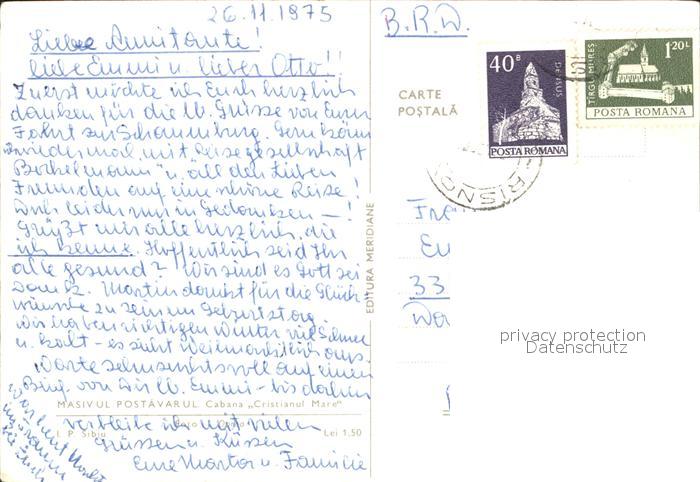 26.11.1975
Liebe Annitante!
liebe Emmi u. lieber Otto!!
Zuerst möchte ich Euch herzlich
danken für die lb. Grüsse von Eurer
Fahrt zur Schaumburg. Gern käme
wiedermal mit Reisegesellschaft
u. all den lieben
Freunden auf eine schöne Reise!
Doch leider nur in Gedanken —!
Grüßt mir alle herzlich, die
ich kenne. Hoffentlich seid Ihr
alle gesund? Wir sind es Gott sei
Dank. Martin dankt für die Glück-
wünsche zu seinem Geburtstag.
Wir haben richtigen Winter viel Schnee
u. kalt - es sieht Weihnachtlich aus.
Warte sehnsuchtsvoll auf einen
Brief von Dir lb. Emmi - bis dahin
MASIVUL POSTĂVARUL Cabana „Cristianul Mare"
verbleibe ich mit vielen
I. P. Sibiu
Lei 1,50
Grüssen u. Küssen
Eure Marta u. Familie
EDITURA MERIDIANE
B.R.D.
CARTE
POȘTALĂ
40B
DENSUȘ
POSTA ROMANA
1,20L
TIRGU MUREȘ
POSTA ROMANA
RISNOV
Fr
Em
33
privacy protection
Datenschutz